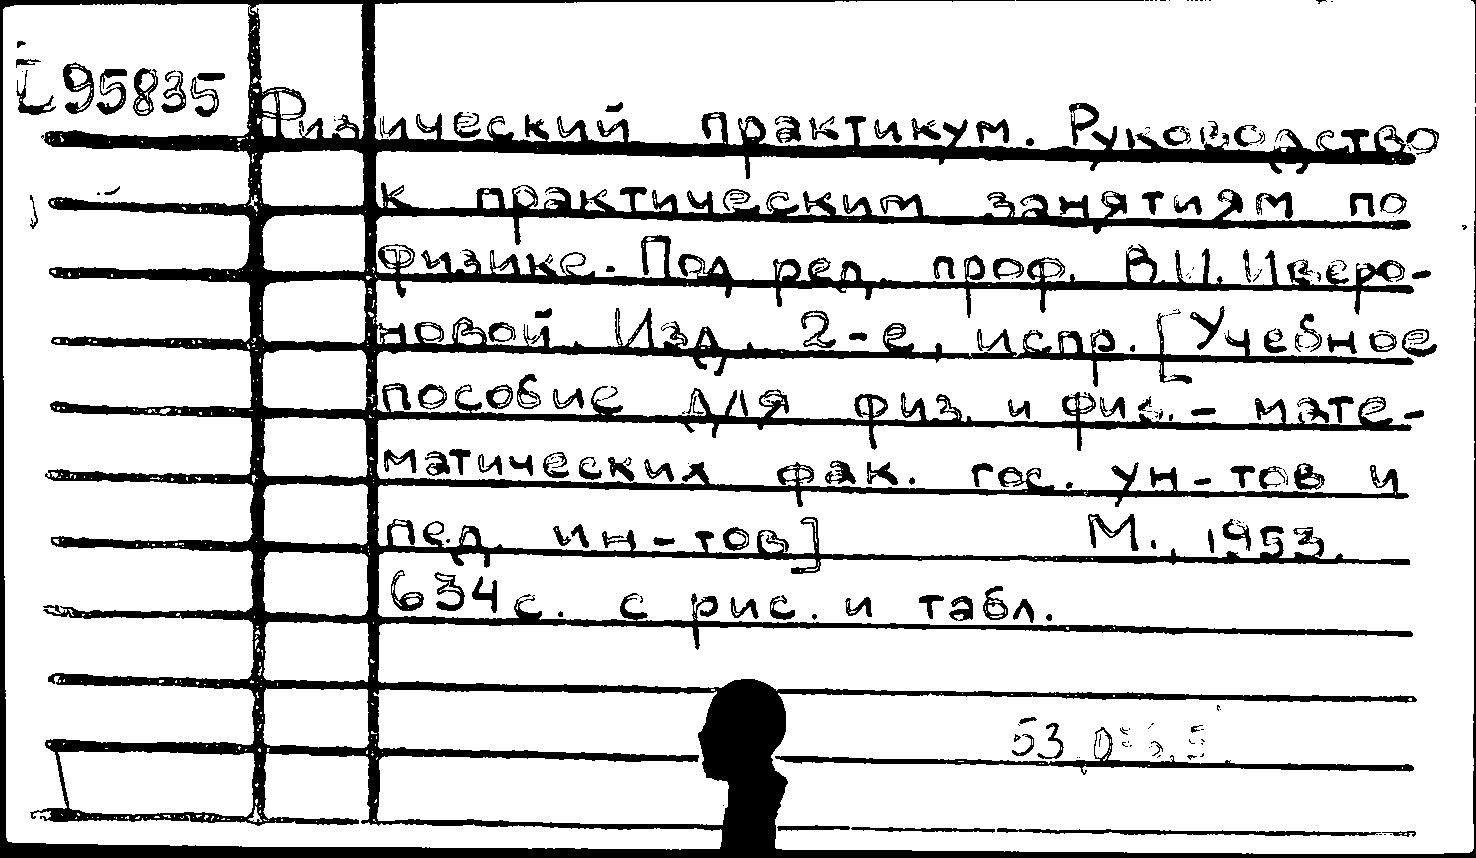 95835
Физический практикум. Руководство
к практическим занятиям по
физике. Под ред. проф. В.И. Иверо-
новой. Изд. 2-е, испр. [Учебное
пособие для физ. и физ.- мате-
матических фак. гос. ун-тов и
пед. ин-тов] М., 1953.
634 с. с рис. и табл.